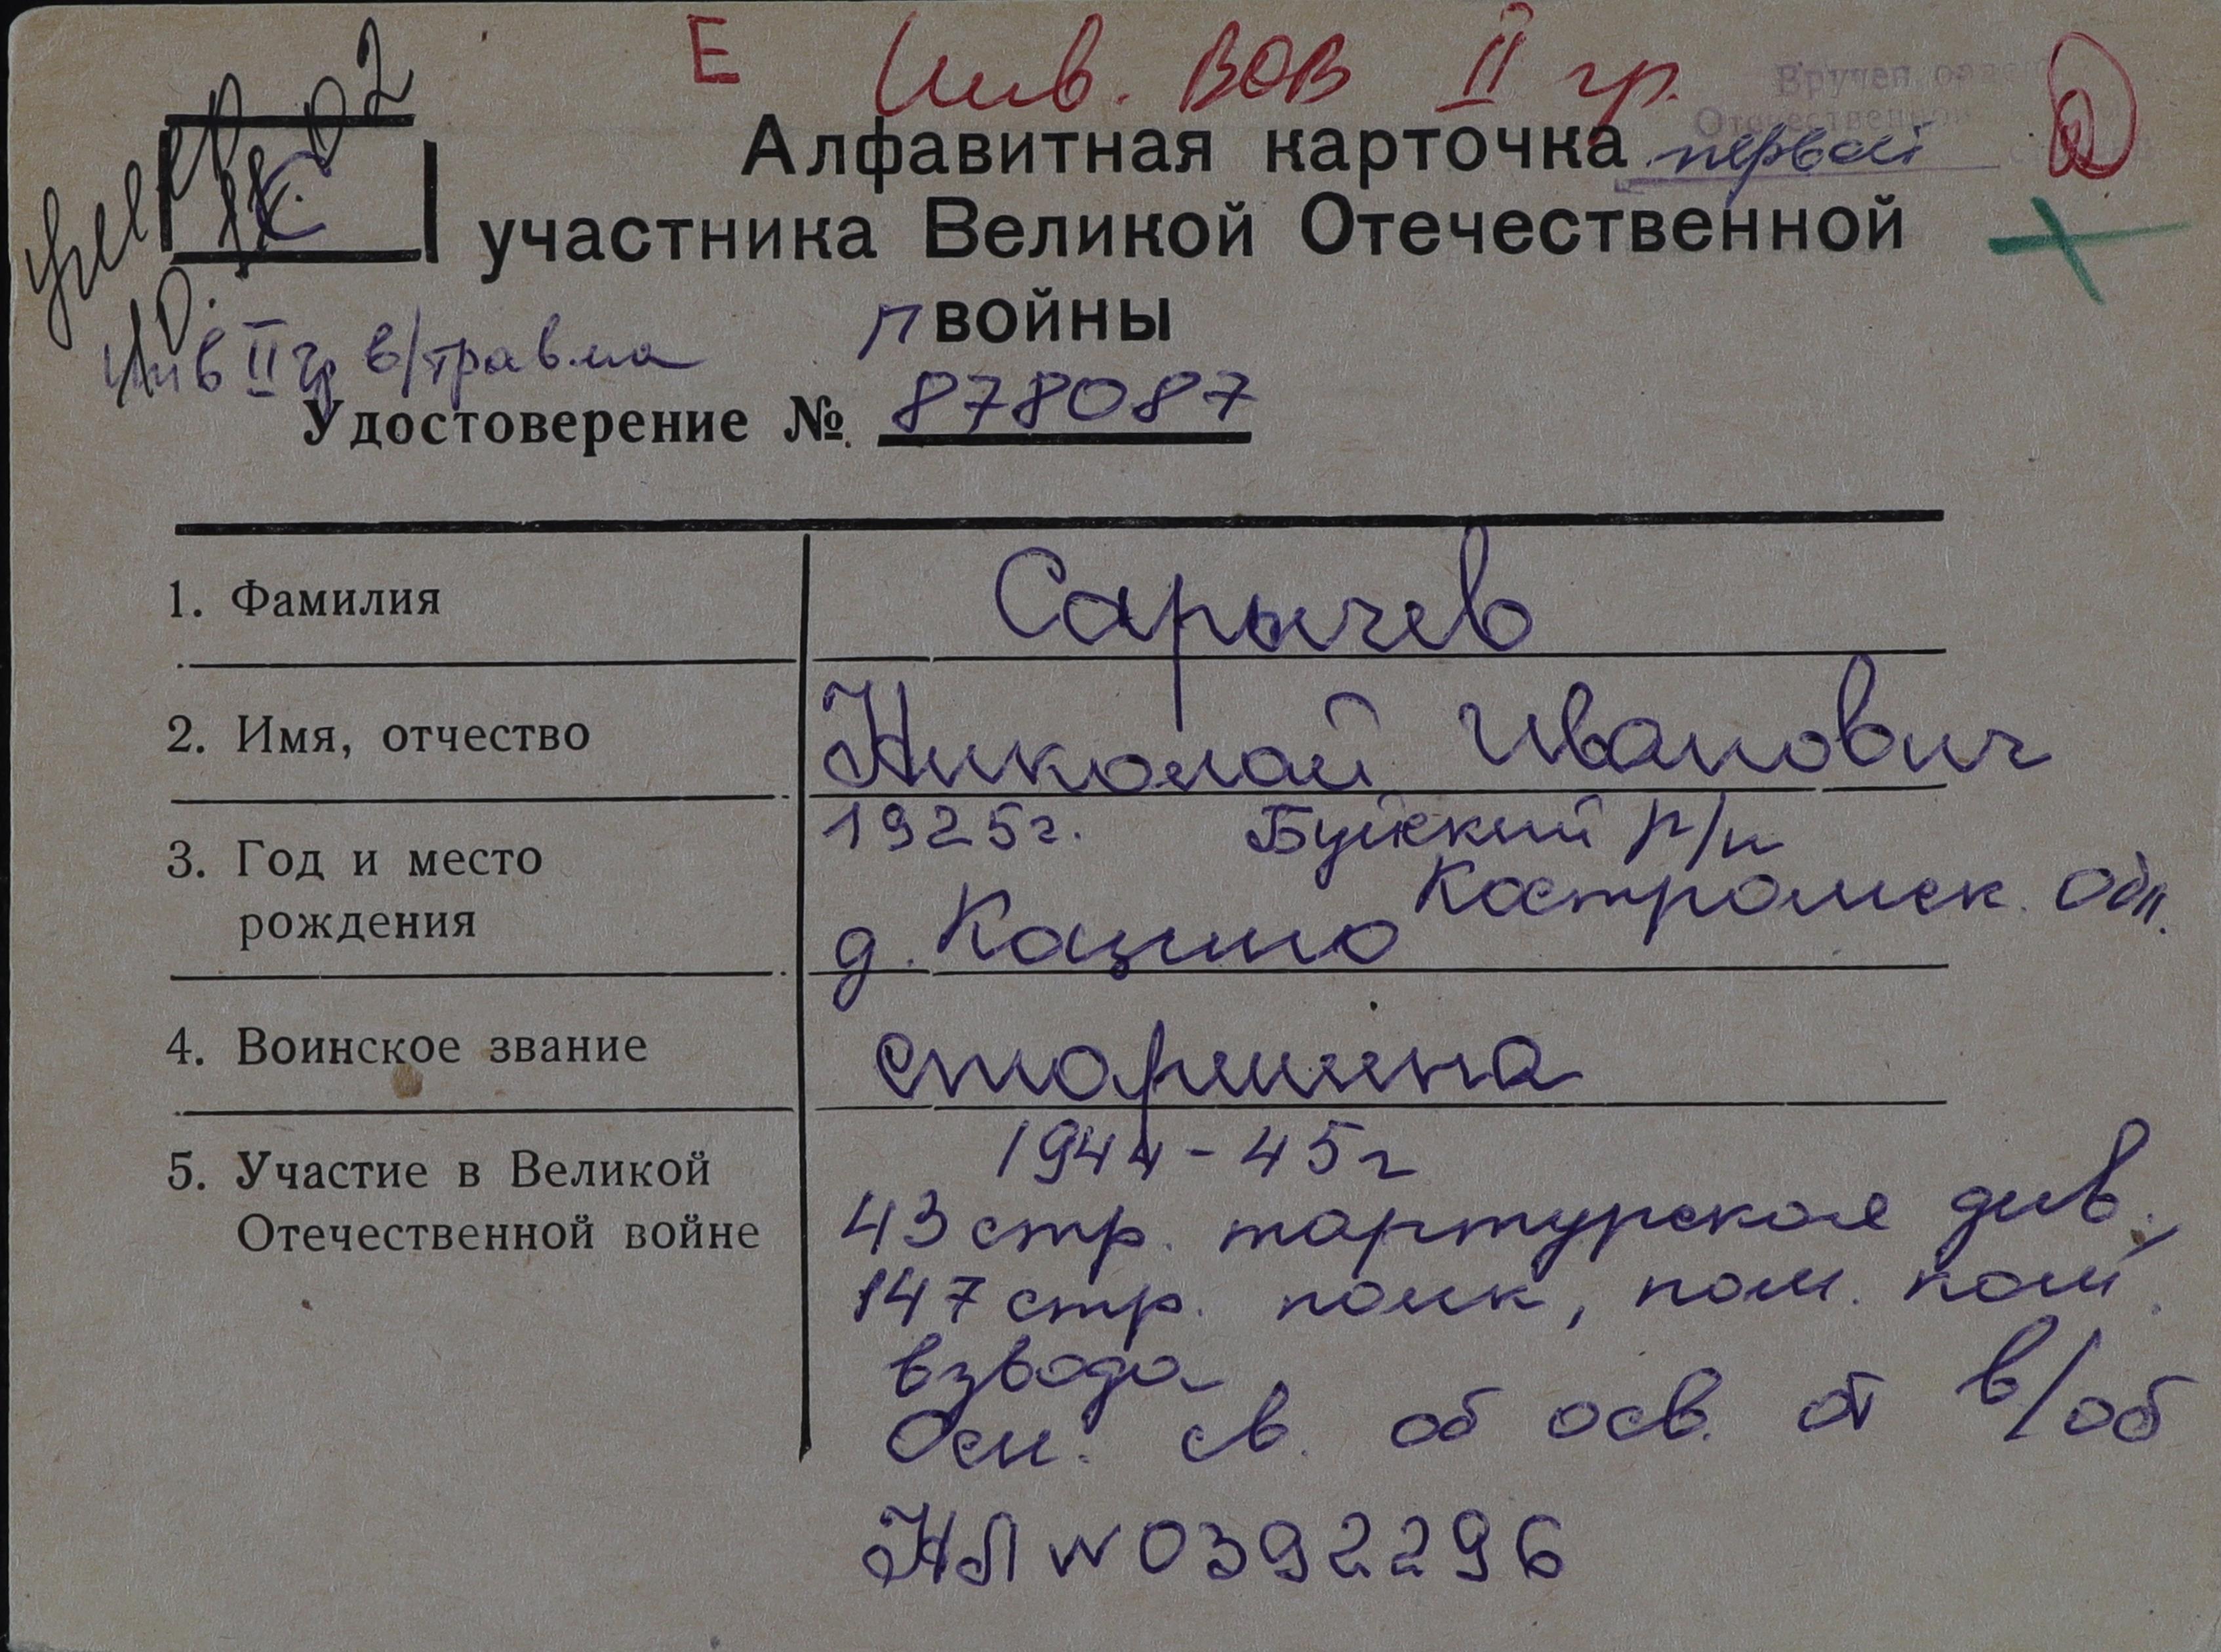 Е Инв. ВОВ II гр.
Вручен
Отечественной
первой
умер
10.11.02
С
Алфавитная карточка
участника Великой Отечественной
войны
П
Инв II гр в/травма
Удостоверение № 878087
1. Фамилия Сарычев
2. Имя, отчество Николай Иванович
3. Год и место 1925г. Буйский р/н
Костромск. обл.
рождения д.
4. Воинское звание старшина
5. Участие в Великой 1944-45г
Отечественной войне 43 стр. тартурская див.,
147 стр. полк, пом. ком.
взвода
Осн. св. об осв. от в/об
НЛ N 0392296